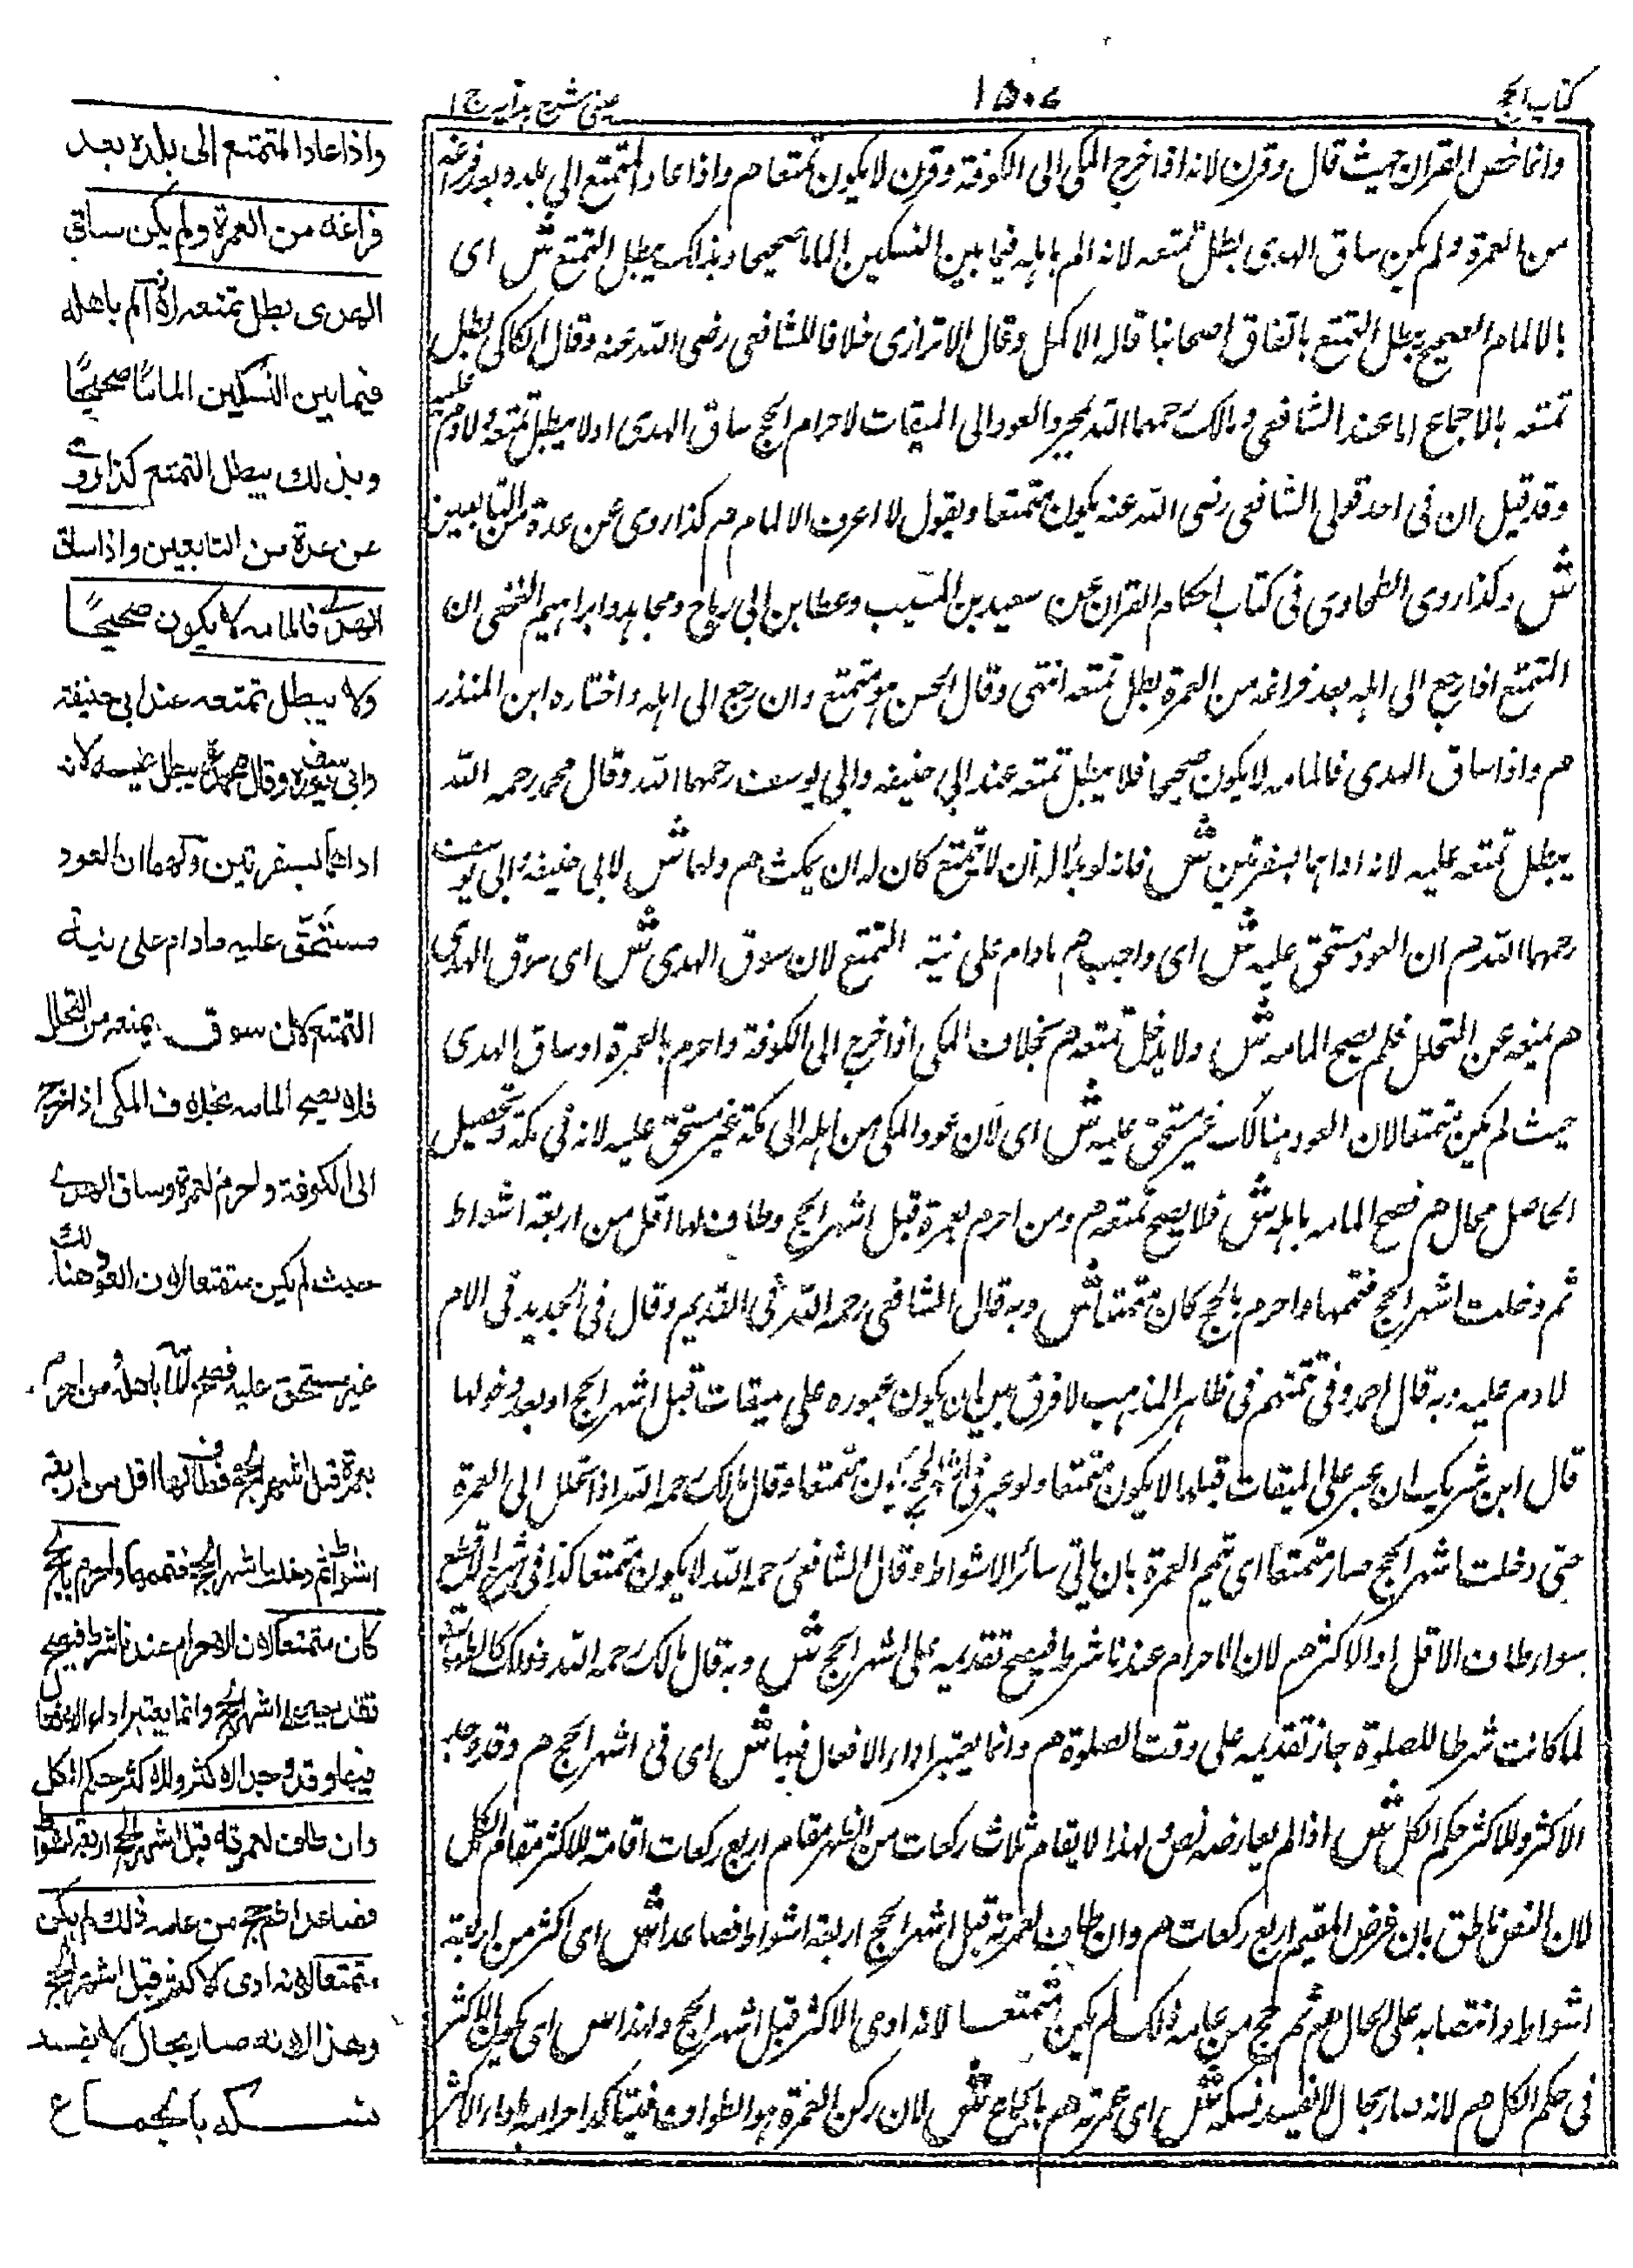 كتاب الحج
١٥٠٤
عینی شرح ہدایہ ج ١
وانما خص القران حيث قال وقرن لانه اذا خرج المكى الى الكوفة وقرن لا يكون متمتعا هم واذا عاد المتمتع الى بلده بعد فراغه
من العمرة ولم يكن ساق الهدى بطل تمتعه لانه الم باهله فيما بين النسكين الماما صحيحا وبذلك يبطل التمتع ش اى
بالالمام الصحيح يبطل التمتع باتفاق اصحابنا قاله الاكمل وقال الاترازى خلافا للشافعى رضى الله عنه وقال الكاكى بطل
تمتعه بالاجماع اما عند الشافعى ومالك رحمهما الله لمجرد العود الى الميقات لاحرام الحج ساق الهدى اولا يبطل تمتعه ولا دم عليه
وقد قيل ان فى احد قولى الشافعى رضى الله عنه يكون متمتعا ويقول لا اعرف الالمام هم كذا روى عن عدة من التابعين
ش وكذا روى الطحاوى فى كتاب احكام القران عن سعيد بن المسيب وعطا بن ابى رباح ومجاهد وابراهيم النخعى ان
التمتع اذا رجع الى اهله بعد فراغه من العمرة بطل تمتعه انتهى وقال الحسن هو متمتع وان رجع الى اهله واختاره ابن المنذر
هم واذا ساق الهدى فالمامه لا يكون صحيحا فلا يبطل تمتعه عند ابى حنيفه وابى يوسف رحمهما الله وقال محمد رحمه الله
يبطل تمتعه عليه لانه اداهما بسفرتين ش فانه لو بدا له ان لا يتمتع كان له ان يمكث هم ولهما ش لابى حنيفة وابى يوسف
رحمهما الله هم ان العود مستحق عليه ش اى واجب هم ما دام على نية التمتع لان سوق الهدى ش اى سوق الهدى
هم يمنعه عن التحلل فلم يصح المامه ش ولا يبطل تمتعه هم بخلاف المكى اذا خرج الى الكوفة واحرم بالعمرة وساق الهدى
حيث لم يكن متمتعا لان العود هنالك غير مستحق عليه ش اى لان عود المكى من اهله الى مكة غير مستحق عليه لانه فى مكة وتحصيل
الحاصل محال هم فصح المامه باهله ش فلا يصح تمتعه هم ومن احرم بعمرة قبل اشهر الحج وطاف لها اقل من اربعة اشواط
ثم دخلت اشهر الحج فتممها واحرم بالحج كان متمتعا ش وبه قال الشافعى رحمه الله فى القديم وقال فى الجديد فى الام
لا دم عليه وبه قال احمد وفى تتمتهم فى ظاهر المذهب لا فرق بين ان يكون عبوره على ميقات قبل اشهر الحج او بعد دخولها
قال ابن شريك ان عبر على الميقات قبلها لا يكون متمتعا ولو عبر فى اشهر الحج يكون متمتعا وقال مالك رحمه الله اذا تحلل الى العمرة
حتى دخلت اشهر الحج صار متمتعا اى تميم العمرة بان ياتى سائر الاشواط وقال الشافعى رحمه الله لا يكون متمتعا كذا فى شرح الاقطع
سواء طاف الاقل او الاكثر هم لان الاحرام عندنا شرط فيصح تقديمه على اشهر الحج ش وبه قال مالك رحمه الله وذلك كالطهارة
لما كانت شرطا للصلوة جاز تقديمه على وقت الصلوة هم وانما يعتبر اداء الافعال فيها ش اى فى اشهر الحج هم وقد وجد
الاكثر وللاكثر حكم الكل ش اذا لم يعارضه نص ولهذا لا يقام ثلاث ركعات من الظهر مقام اربع ركعات اقامة للاكثر مقام الكل
لان النص ناطق بان فرض المقيم اربع ركعات هم وان طاف لعمرته قبل اشهر الحج اربعة اشواط فصاعدا ش اى اكثر من اربعة
اشواط وانتصابه على الحال هم ثم حج من عامه ذلك لم يكن متمتعا لانه ادى الاكثر قبل اشهر الحج وهذا ش اى كون الاكثر
فى حكم الكل هم لانه صار بحال لا يفسد نسكه ش اى عمرته هم بالجماع ش لان ركن العمرة هو الطواف فيتاكد احرامه باداء الاكثر
واذا عاد المتمتع الى بلده بعد
فراغه من العمرة ولم يكن ساق
الهدى بطل تمتعه لانه الم باهله
فيما بين النسكين الماما صحيحًا
وبذلك يبطل التمتع كذا روى
عن عدة من التابعين واذا ساق
الهدى فالمامه لا يكون صحيحًا
ولا يبطل تمتعه عند ابى حنيفة
وابى يوسف وقال محمد يبطل عليه لانه
اداهما بسفرتين ولهما ان العود
مستحق عليه مادام على نية
التمتع لان سوق يمنعه من التحلل
فلا يصح المامه بخلاف المكى اذا خرج
الى الكوفة واحرم لعمرة وساق الهدى
حيث لم يكن متمتعا لان العود هنالك
غير مستحق عليه فصح المامه باهله ومن احرم
بعمرة قبل اشهر الحج فطاف لها اقل من اربعة
اشواط ثم دخلت اشهر الحج فتممها واحرم بالحج
كان متمتعا لان الاحرام عندنا شرط فيصح
تقديمه على اشهر الحج وانما يعتبر اداء الافعال
فيها وقد وجد الاكثر وللاكثر حكم الكل
وان طاف لعمرته قبل اشهر الحج اربعة اشواط
فصاعدا ثم حج من عامه ذلك لم يكن
متمتعا لانه ادى الاكثر قبل اشهر الحج
وهذا لانه صار بحال لا يفسد
نسكه بالجماع